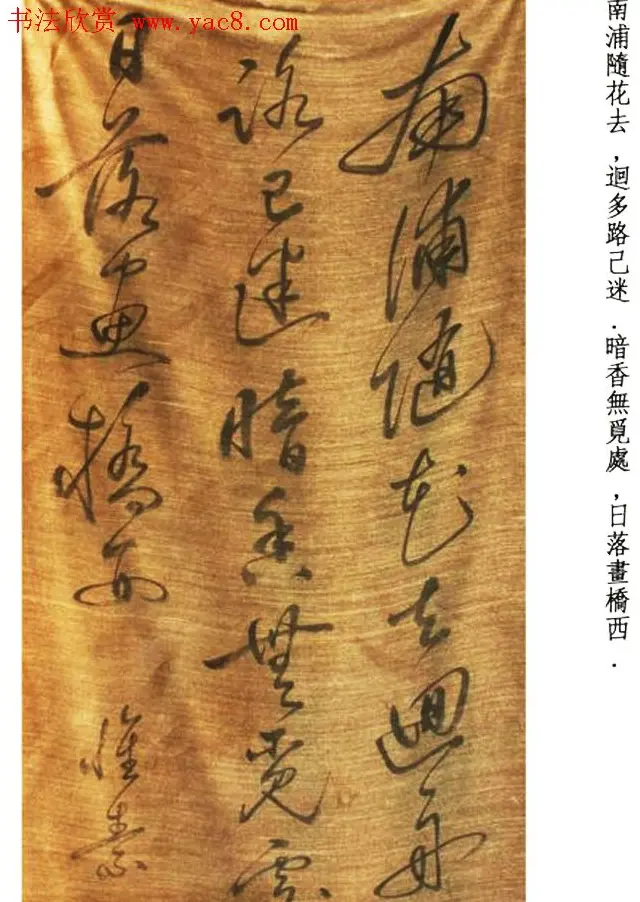 书法欣赏 www.yac8.com
南浦隨花去，迴多路己迷．暗香無覓處，日落畫橋西．
南浦隨花去迴舟
路已迷暗香無覓處
日落畫橋西 懷素